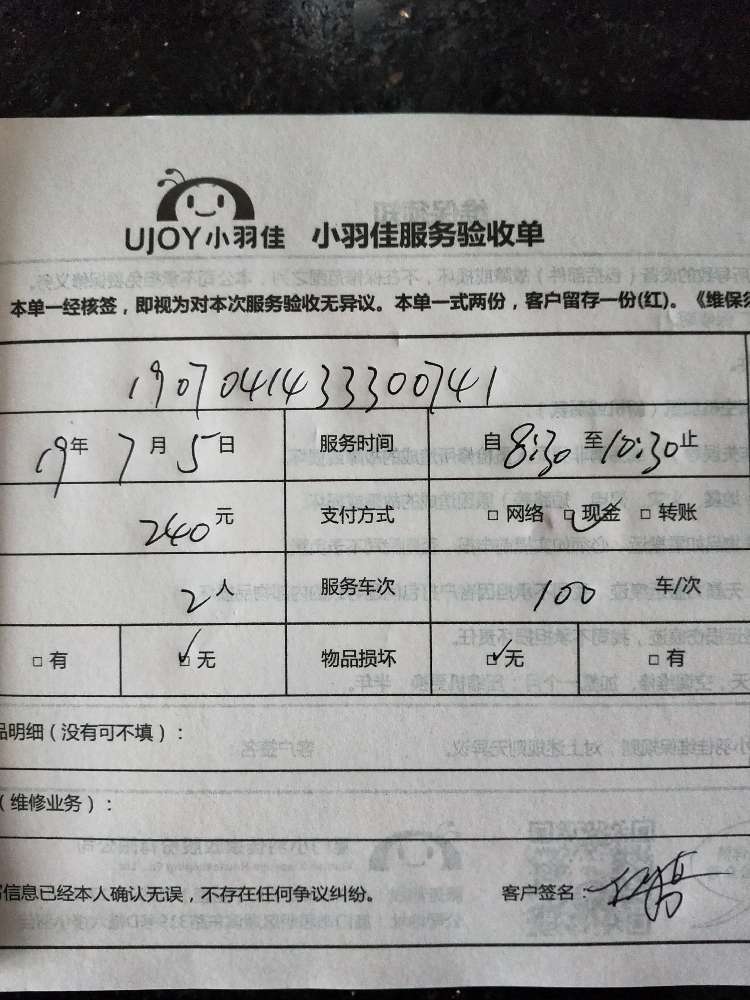 UJOY小羽佳 小羽佳服务验收单
本单一经核签，即视为对本次服务验收无异议。本单一式两份，客户留存一份(红)。《维保须
19070414333300741
19年 7月 5日 服务时间 自8:30至10:30止
240元 支付方式 □ 网络 ☑ 现金 □ 转账
2人 服务车次 100 车/次
□ 有 ☑ 无 物品损坏 ☑ 无 □ 有
品明细（没有可不填）：
（维修业务）：
信息已经本人确认无误，不存在任何争议纠纷。 客户签名：